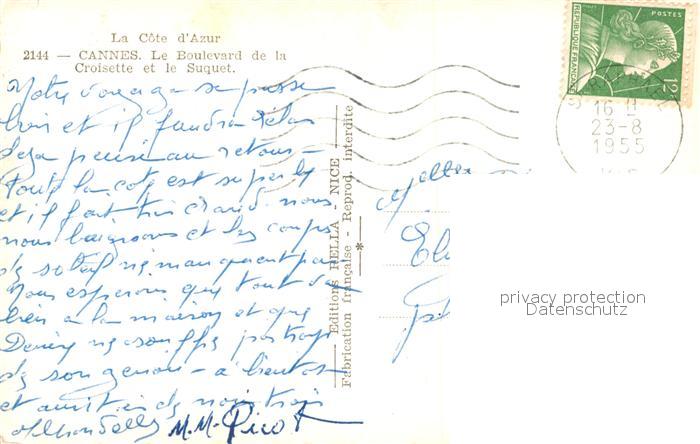 La Côte d'Azur
2144 — CANNES. Le Boulevard de la
Croisette et le Suquet.
Notre voyage se passe
bien et il faudra
au retour -
Toute la côte est superbe
et il fait très chaud. nous
nous baignons et les coups
de soleil ne manquent pas
Nous espérons que tout va
bien à la maison et que
ne souffre pas trop
de son genou - à bientôt
et amitiés de nous trois
M.M. Picot
Editions RELLA, NICE
Fabrication française - Reprod. interdite
RÉPUBLIQUE FRANÇAISE
POSTES
12F
16 H
23-8
1955
privacy protection
Datenschutz